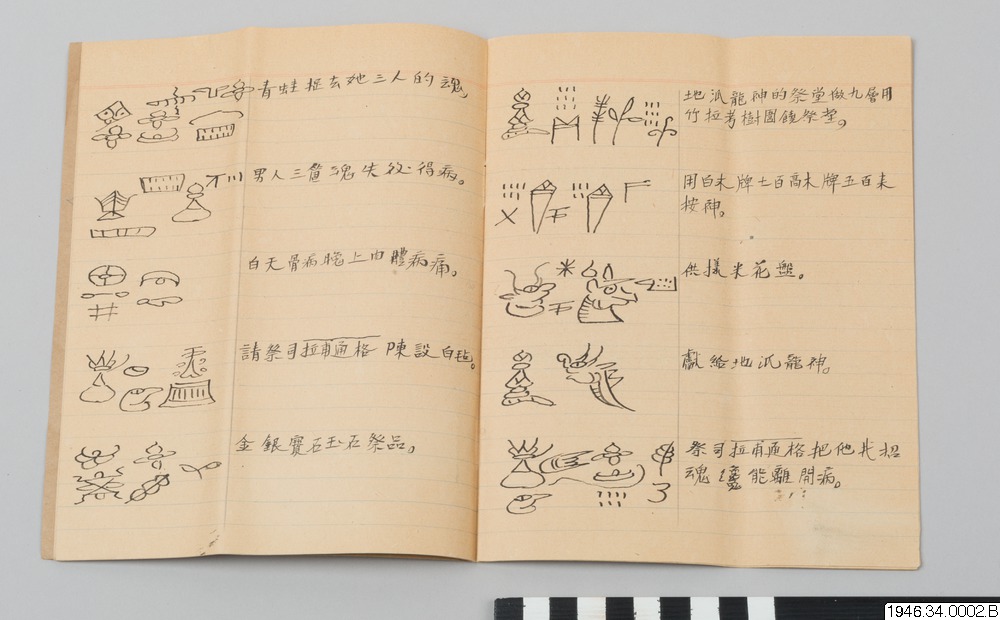 青蛙捉去她三人的魂,
男人三魂失 得病。
白天骨病晚上肉體病痛。
請祭司拉甫通格陳設白毡。
金銀寶石玉石祭品。
地派龍神的祭堂做九層用
竹拉考樹圍繞祭堂。
用白木牌七百高木牌五百来
按神。
供樣米花盤。
獻給地派龍神。
祭司拉甫通格把他找招
魂 能離開病。
1946.34.0002.B